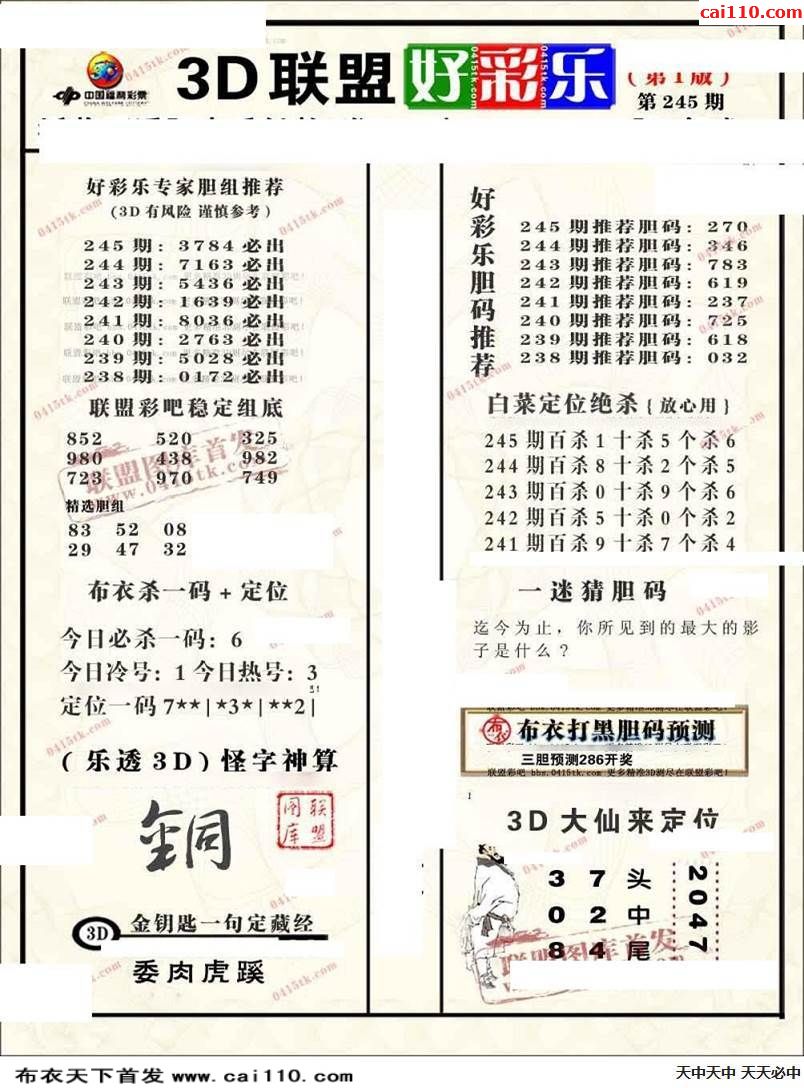 cai110.com
中国福利彩票
CHINA WELFARE LOTTERY
3D联盟好彩乐
(第1版)
第245期
好彩乐专家胆组推荐
(3D有风险 谨慎参考)
245期: 3784必出
244期: 7163必出
243期: 5436必出
242期: 1639必出
241期: 8036必出
240期: 2763必出
239期: 5028必出
238期: 0172必出
联盟彩吧稳定组底
852 520 325
980 438 982
723 970 749
精选胆组
83 52 08
29 47 32
布衣杀一码+定位
今日必杀一码: 6
今日冷号: 1 今日热号: 3
定位一码 7**|*3*|**2|
(乐透3D)怪字神算
联盟图库
3D 金钥匙一句定藏经
委肉虎蹊
好彩乐胆码推荐
245期推荐胆码: 270
244期推荐胆码: 346
243期推荐胆码: 783
242期推荐胆码: 619
241期推荐胆码: 237
240期推荐胆码: 725
239期推荐胆码: 618
238期推荐胆码: 032
白菜定位绝杀{放心用}
245期百杀1十杀5个杀6
244期百杀8十杀2个杀5
243期百杀0十杀9个杀6
242期百杀5十杀0个杀2
241期百杀9十杀7个杀4
一迷猜胆码
迄今为止，你所见到的最大的影
子是什么?
布衣打黑胆码预测
三胆预测286开奖
联盟彩吧 bbs.0415tk.com 更多精准3D测尽在联盟彩吧!
3D大仙来定位
3 7 头
0 2 中
8 4 尾
2047
联盟图库首发
www.0415tk.com
布衣天下首发 www.cai110.com
天中天中 天天必中